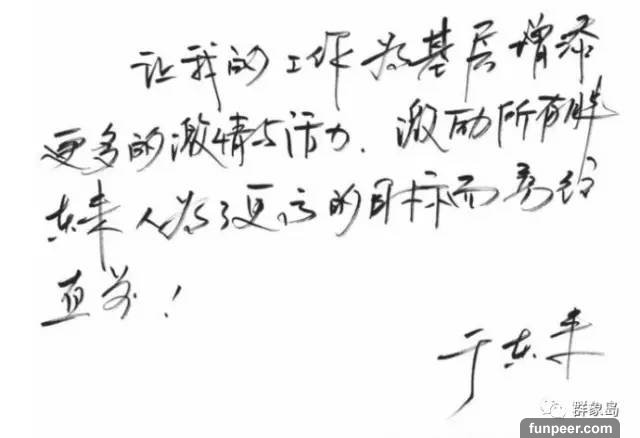 让我的工作为基层增添
更多的激情与活力、激励所有胖
东来人为了更高的目标而勇往
直前！
于东来
群象岛
funpeer.com